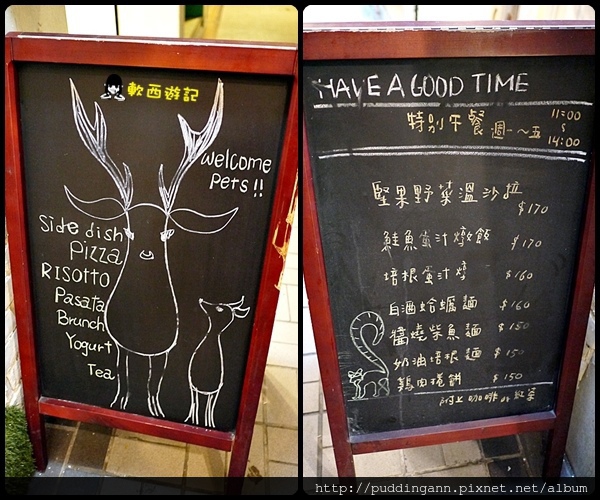 軟西遊記
welcome
Pets!!
Side dish
Pizza
RISOTTO
Pasata
Brunch
Yogurt
Tea
HAVE A GOOD TIME
特別午餐 週一～五 11:00
14:00
堅果野菜溫沙拉 $170
鮭魚蛋汁燉飯 $170
培根蛋汁 $160
白酒蛤蠣麵 $160
醬燒柴魚麵 $150
奶油培根麵 $150
雞肉捲餅 $150
附上咖啡or紅茶
http://puddingann.pixnet.net/album